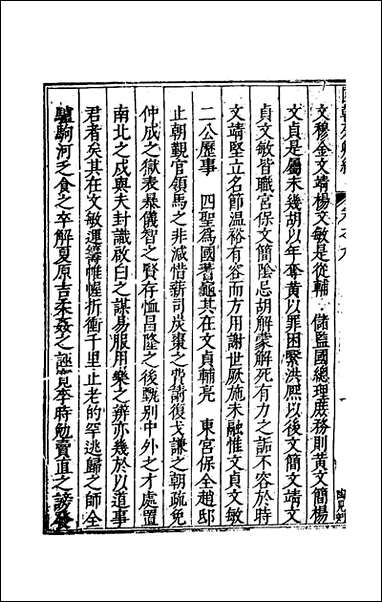 文穆金文靖楊文敏是從輔 儲監國總理庶務則黄文簡楊
文貞是屬未幾胡以年奪黄以罪囚繫洪熈以後文簡文靖文
貞文敏皆職宫保文簡陰忌胡解蒙解死有力之詬不容於時
文靖堅立名節温裕有容而方用謝世厥施未融惟文貞文敏
二公歴事 四聖爲國蓍龜其在文貞輔亮 東宫保全趙邸
止朝觀官領馬之非減惜薪司炭棗之費請復戈謙之朝疏免
仲成之獄表暴儀智之賢存恤昌隆之後甄别中外之才處置
南北之戍與夫封識啟白之謀易服用樂之辨亦幾於以道事
君者矣其在文敏運籌帷幄折衝千里止老的罕逃歸之師全
驢駒河乏食之卒解夏原吉柔姦之誣寛李時勉賣直之謗